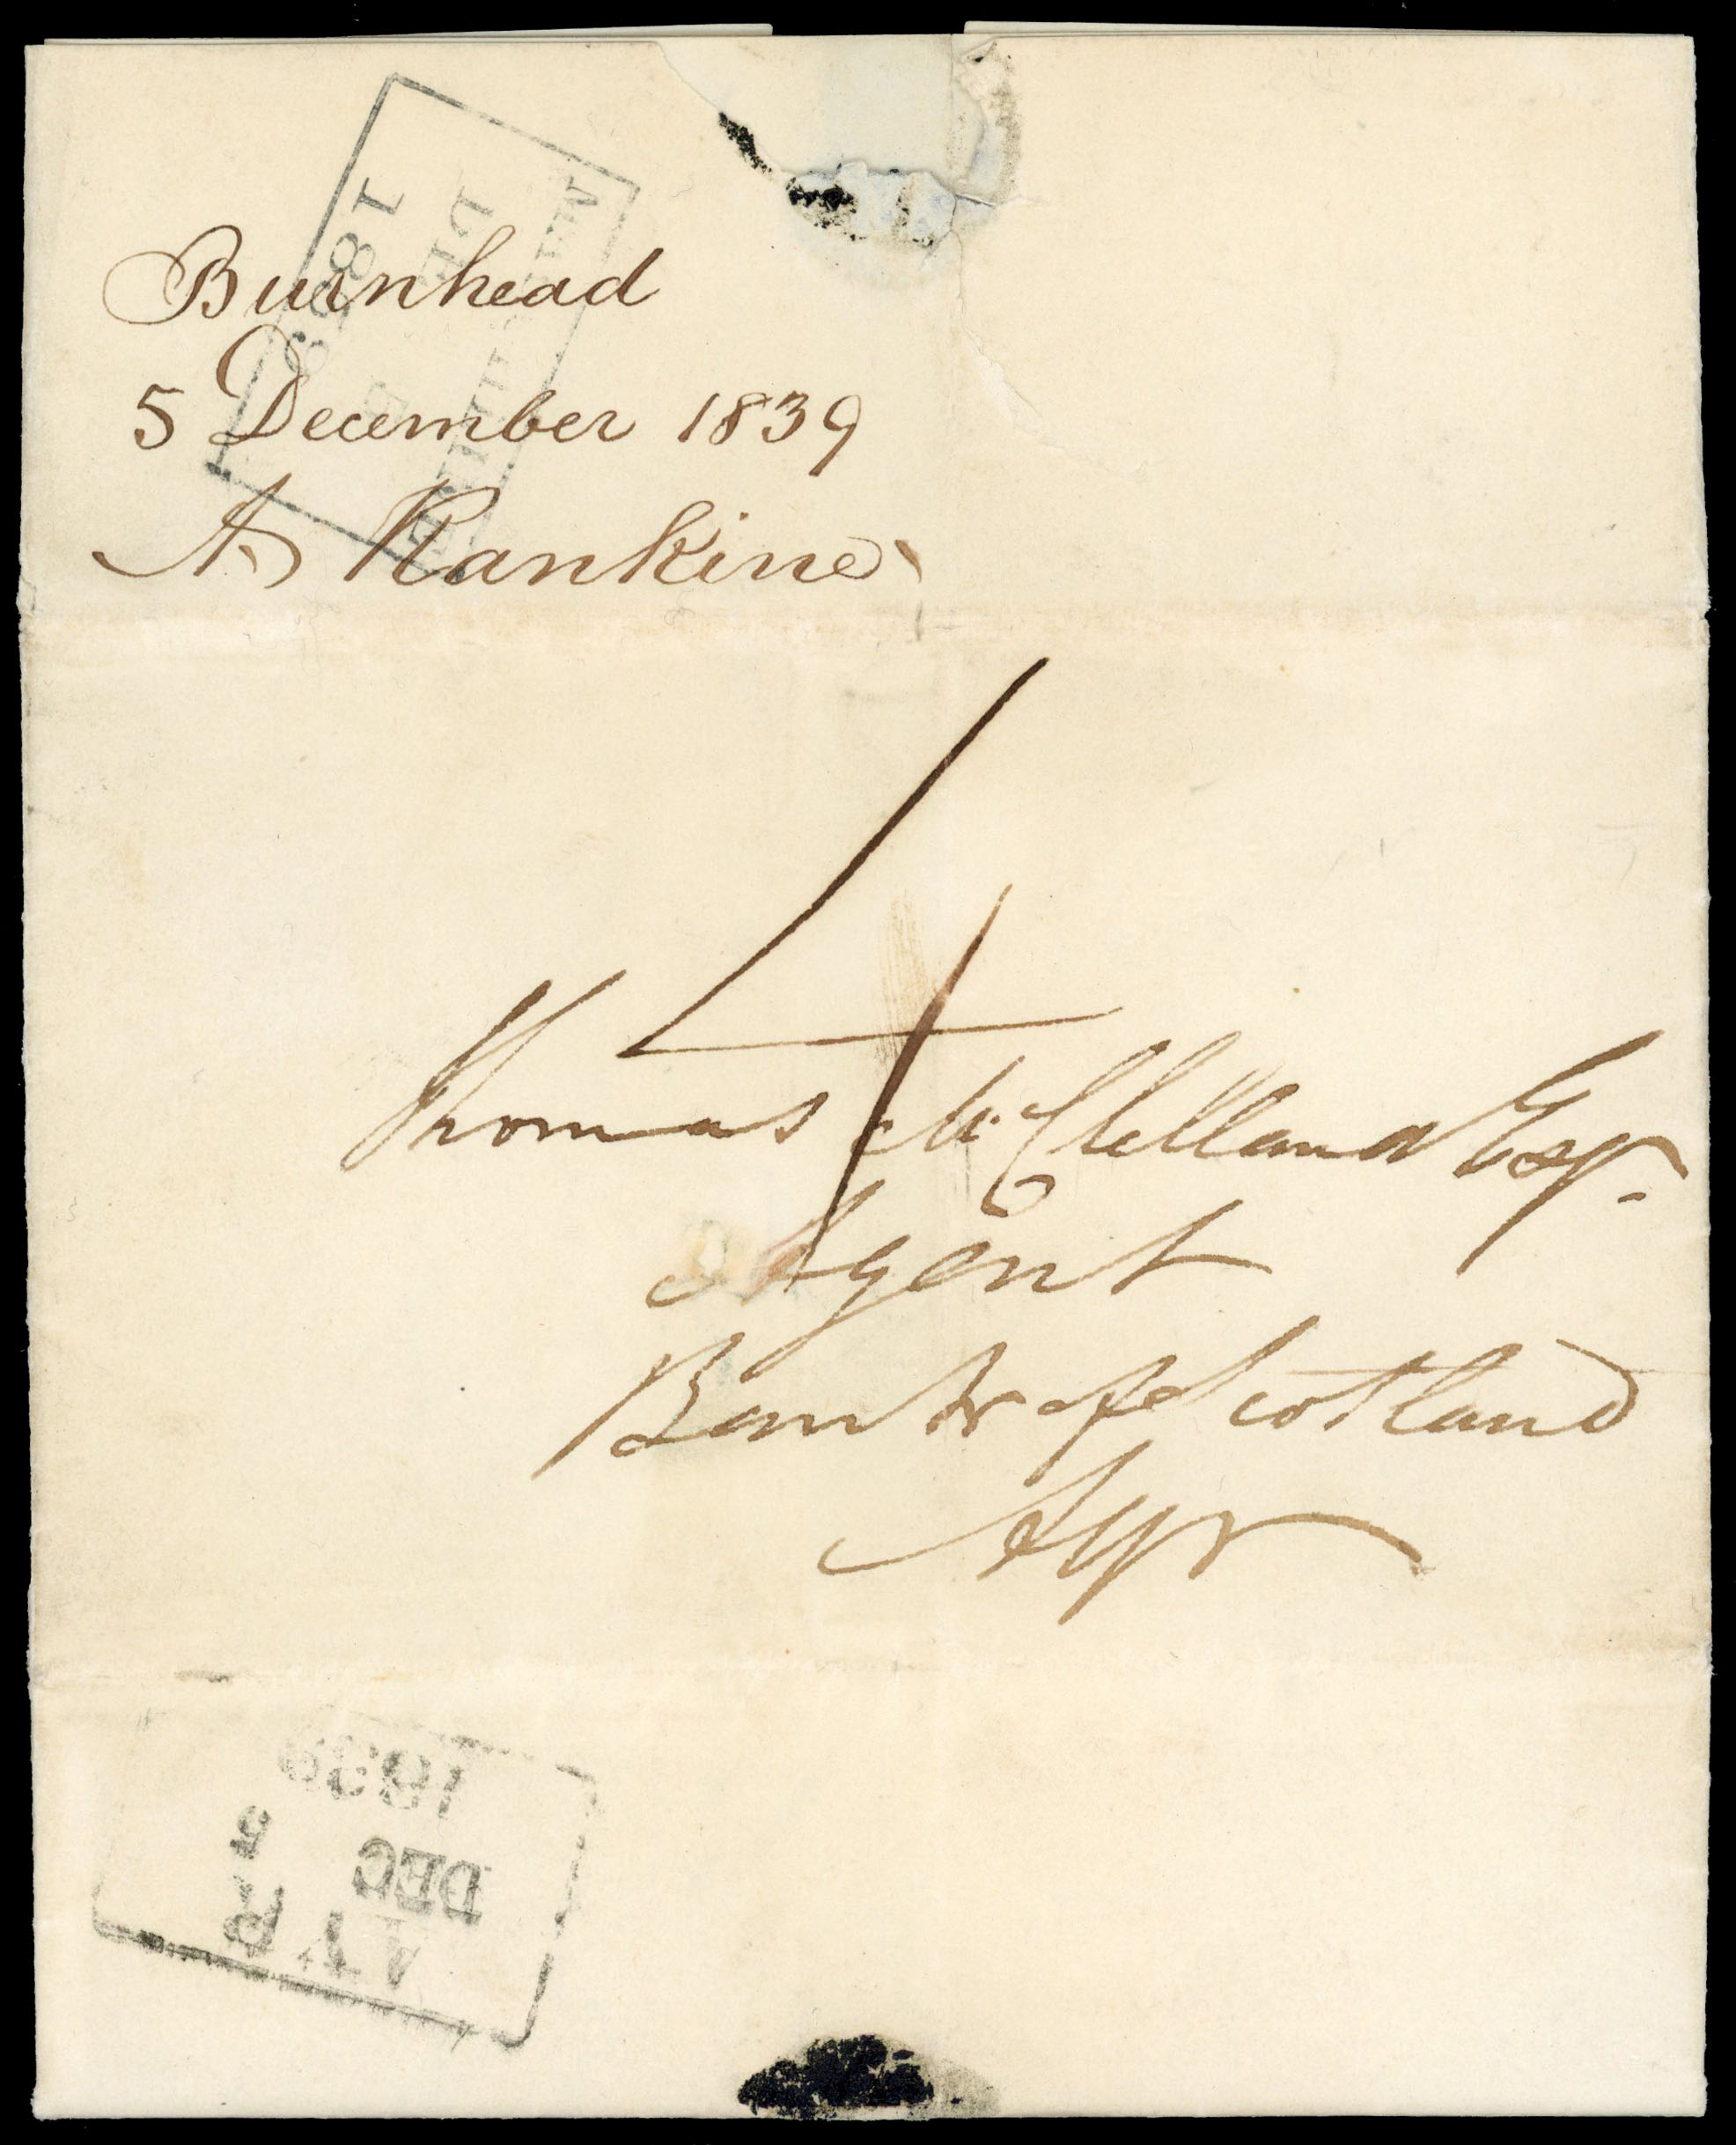 Burnhead
5 December 1839
A Rankine
1839
4
Thomas McClelland Esqr.
Agent
Bank of Scotland
Ayr
AYR
DEC 5
1839